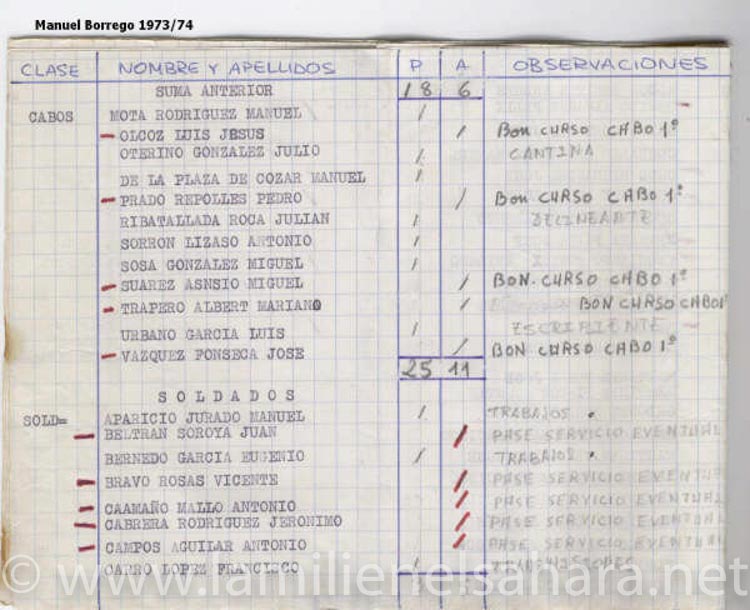 Manuel Borrego 1973/74
CLASE NOMBRE Y APELLIDOS P A OBSERVACIONES
SUMA ANTERIOR 18 6
CABOS MOTA RODRIGUEZ MANUEL /
- OLCOZ LUIS JESUS / BON CURSO CABO 1º
OTERINO GONZALEZ JULIO / CANTINA
DE LA PLAZA DE COZAR MANUEL /
- PRADO REPOLLES PEDRO / BON CURSO CABO 1º
RIBATALLADA ROCA JULIAN / DELINEANTE
SORRON LIZASO ANTONIO /
SOSA GONZALEZ MIGUEL /
- SUAREZ ASNSIO MIGUEL / BON. CURSO CABO 1º
- TRAPERO ALBERT MARIANO / BON CURSO CABO 1º
URBANO GARCIA LUIS / ESCRIBIENTE
- VAZQUEZ FONSECA JOSE / BON CURSO CABO 1º
25 11
SOLDADOS
SOLD= APARICIO JURADO MANUEL / TRABAJOS .
- BELTRAN SOROYA JUAN / PASE SERVICIO EVENTUAL
BERNEDO GARCIA EUGENIO / TRABAJOS .
- BRAVO ROSAS VICENTE / PASE SERVICIO EVENTUAL
- CAAMAÑO MALLO ANTONIO / PASE SERVICIO EVENTUAL
- CABRERA RODRIGUEZ JERONIMO / PASE SERVICIO EVENTUAL
- CAMPOS AGUILAR ANTONIO / PASE SERVICIO EVENTUAL
CARRO LOPEZ FRANCISCO / TRANSMISIONES
© www.lamilienelsahara.net